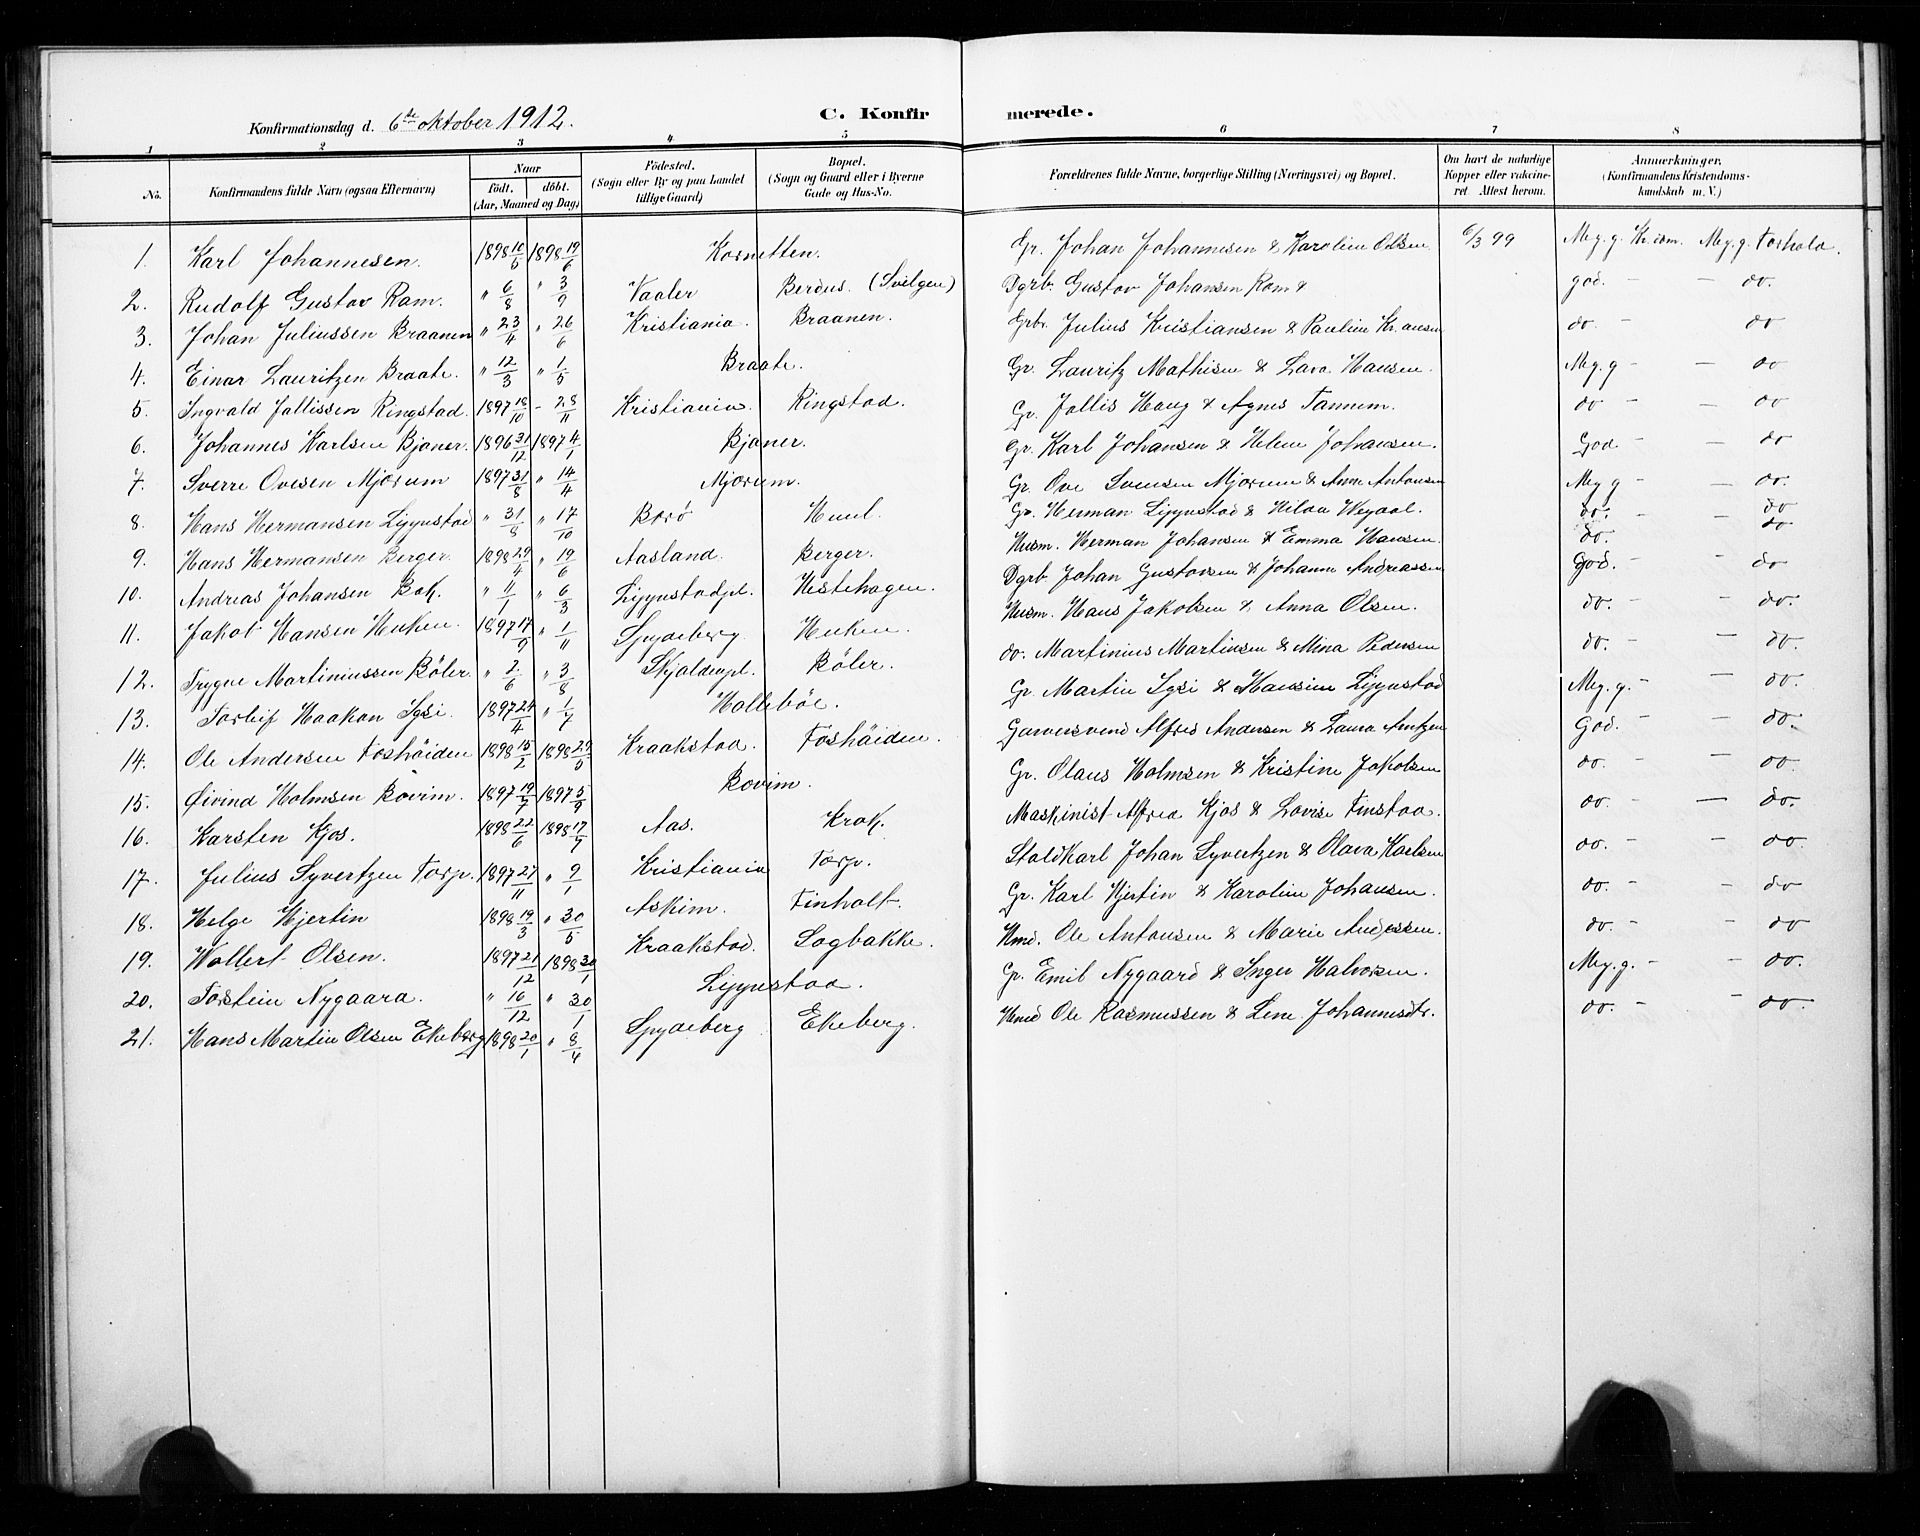 Konfirmationsdag d. 6te oktober 1912. C. Konfirmerede.
1 2 3 4 5 6 7 8
No. Konfirmandens fulde Navn (ogsaa Efternavn) Naar födt. döbt. (Aar, Maaned og Dag) Födested. (Sogn eller By og paa Landet tillige Gaard) Bopæl. (Sogn og Gaard eller i Byerne Gade og Hus-No. Forældrenes fulde Navne, borgerlige Stilling (Næringsvei) og Bopæl. Om havt de naturlige Kopper eller vakcineret Attest herom. Anmærkninger. (Konfirmandens Kristendomskundskab m. V.)
1. Karl Johannesen. 1898 10/5 1898 19/6 Kornetten. Gr. Johan Johannesen & Karoline Olsen 6/3 99 Meg. g. Kr.dom. Meg. g. Forhold.
2. Rudolf Gustav Ram. " 6/8 " 3/9 Vaaler Berdus. (Svilgen) Dgrb. Gustav Johansen Ram & god. - do.
3. Johan Juliussen Braanen " 23/4 " 26/6 Kristiania. Braanen. Grbr. Julius Kristiansen & Pauline Kr. ansen do - do
4. Einar Lauritzen Braate. " 12/3 " 1/5 Braate. Gr. Lauritz Mathisen & Lava Hansen. Meg. g - - do
5. Ingvald Jollissen Ringstad. 1897 18/10 - 28/11 Kristiania. Ringstad. Gr. Jollis Haug & Agnes Tannem. do - - do
6. Johannes Karlsen Bjaner. 1896 31/12 1897 4/1 Bjaner. Gr. Karl Johansen & Helene Johansen. God. - - do
7. Sverre Ovesen Mjørum 1897 31/8 " 14/4 Mjørum. Gr. Ove Svensen Mjørum & Anne Antonsen Meg g - - do.
8. Hans Hermansen Lippestad " 31/8 " 17/10 Borø Huul. Gr. Herman Lippestad & Hilda do. - - do
9. Hans Hermansen Berger. 1898 29/4 " 19/6 Aasland. Berger. Husm. Herman Johansen & Emma Hansen. do. do
10. Andreas Johansen Bak. " 11/1 " 6/3 Hestehagen. Dgrb. Johan Gustavsen & Johanne Andreassen God. - - do
11. Jakob Hansen Huken. 1897 17/9 " 1/11 Spydeberg. Huken. Husm. Hans Jakobsen & Anna Olsen. do. - - do.
12. Trygve Martiniussen Böler. " 2/6 " 3/8 Böler. do. Martinius Martinsen & Mina Pedersen do. - - do.
13. Torleif Haakon 1897 24/4 " 1/7 Holleböe. Gr. Martin & Hansine Lippestad Meg. g. - - do.
14. Ole Andersen Foshöiden 1898 15/2 1898 29/5 Kraakstad. Foshöiden. Garversvend Alfred Andersen & Laura Arntzen God. - do.
15. Øivind Holmsen Bovim. 1897 19/7 1897 5/9 Bovim. Gr. Olaus Holmsen & Kristine Jakobsen do. - - do.
16. Karsten Kjos. 1898 22/6 1898 17/7 Aas. Krok. Maskinist Alfred Kjos & Lovise Finstad. do. - - do.
17. Julius Syvertzen Torp. 1897 27/11 " 9/1 Kristiania Torp. Staldkarl Johan Syvertzen & Olava Karlsen do. - - do.
18. Helge Hjertin 1898 19/3 " 30/5 Askim. Finholt. Gr. Karl Hjertin & Karoline Johansen. do. - - do
19. Wollert Olsen. 1897 21/12 1898 30/1 Kraakstad. Sagbakke. Hmd. Ole Antonsen & Marie Andersen. do. - - do
20. Torstein Nygaard. " 16/12 " 30/1 Lippestad. Gr. Emil Nygaard & Inger Halvorsen. Meg. g. - - do.
21. Hans Martin Olsen Ekeberg 1898 20/1 " 8/4 Spydeberg Ekeberg. Hmd Ole Rasmussen & Lene Johannesdtr. do. - - do.